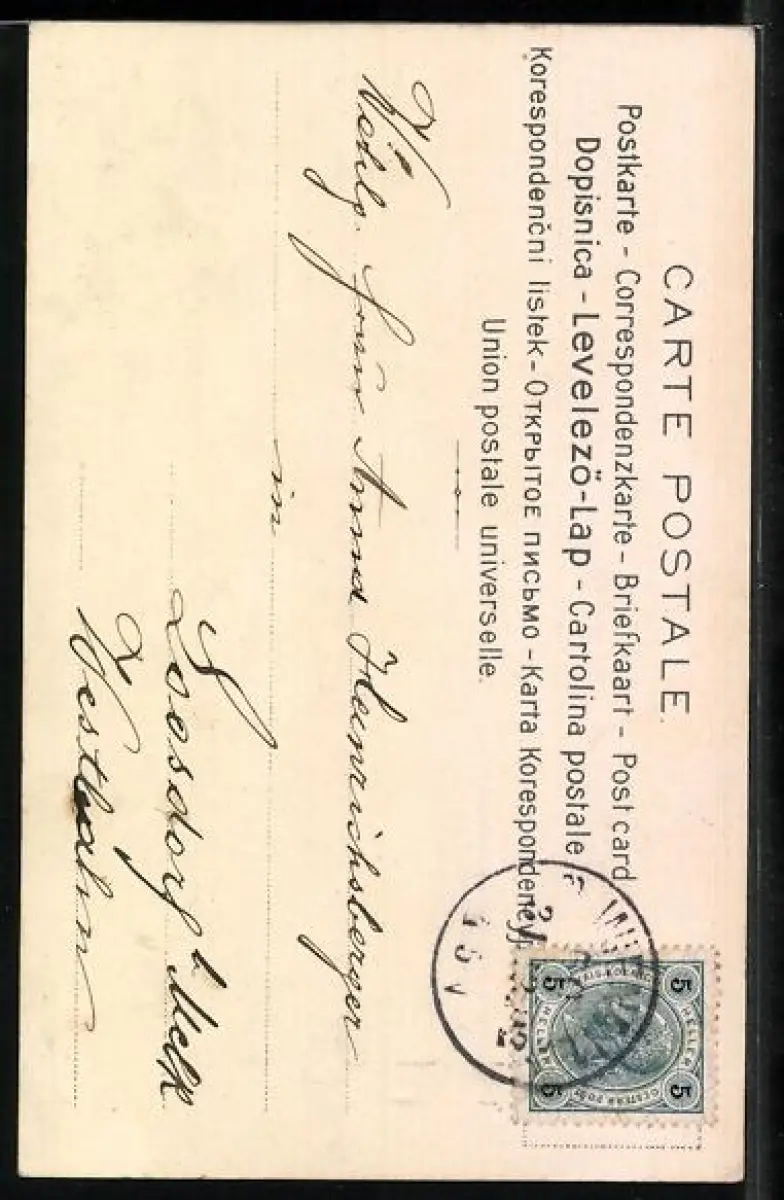 CARTE POSTALE.
Postkarte - Correspondenzkarte - Briefkaart - Post card
Dopisnica - Levelező-Lap - Cartolina postale
Korespondenční listek - Открытое письмо - Karta Korespondencyj
Union postale universelle.
WIE
5 5
HELLER HELLER
5 5
Wohlg. Frau Anna Heinrichsberger
in
Loosdorf b. Melk
Westbahn